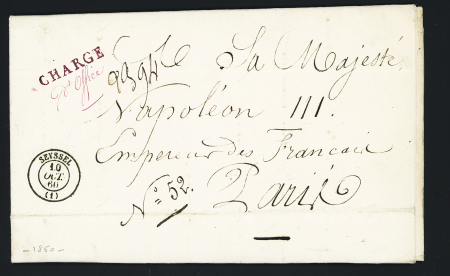 CHARGE
d'Office
9394
Sa Majesté
Napoléon III.
Empereur des Francais
N° 52.
Paris
SEYSSEL
10
OCT
60
(1)
-1860-